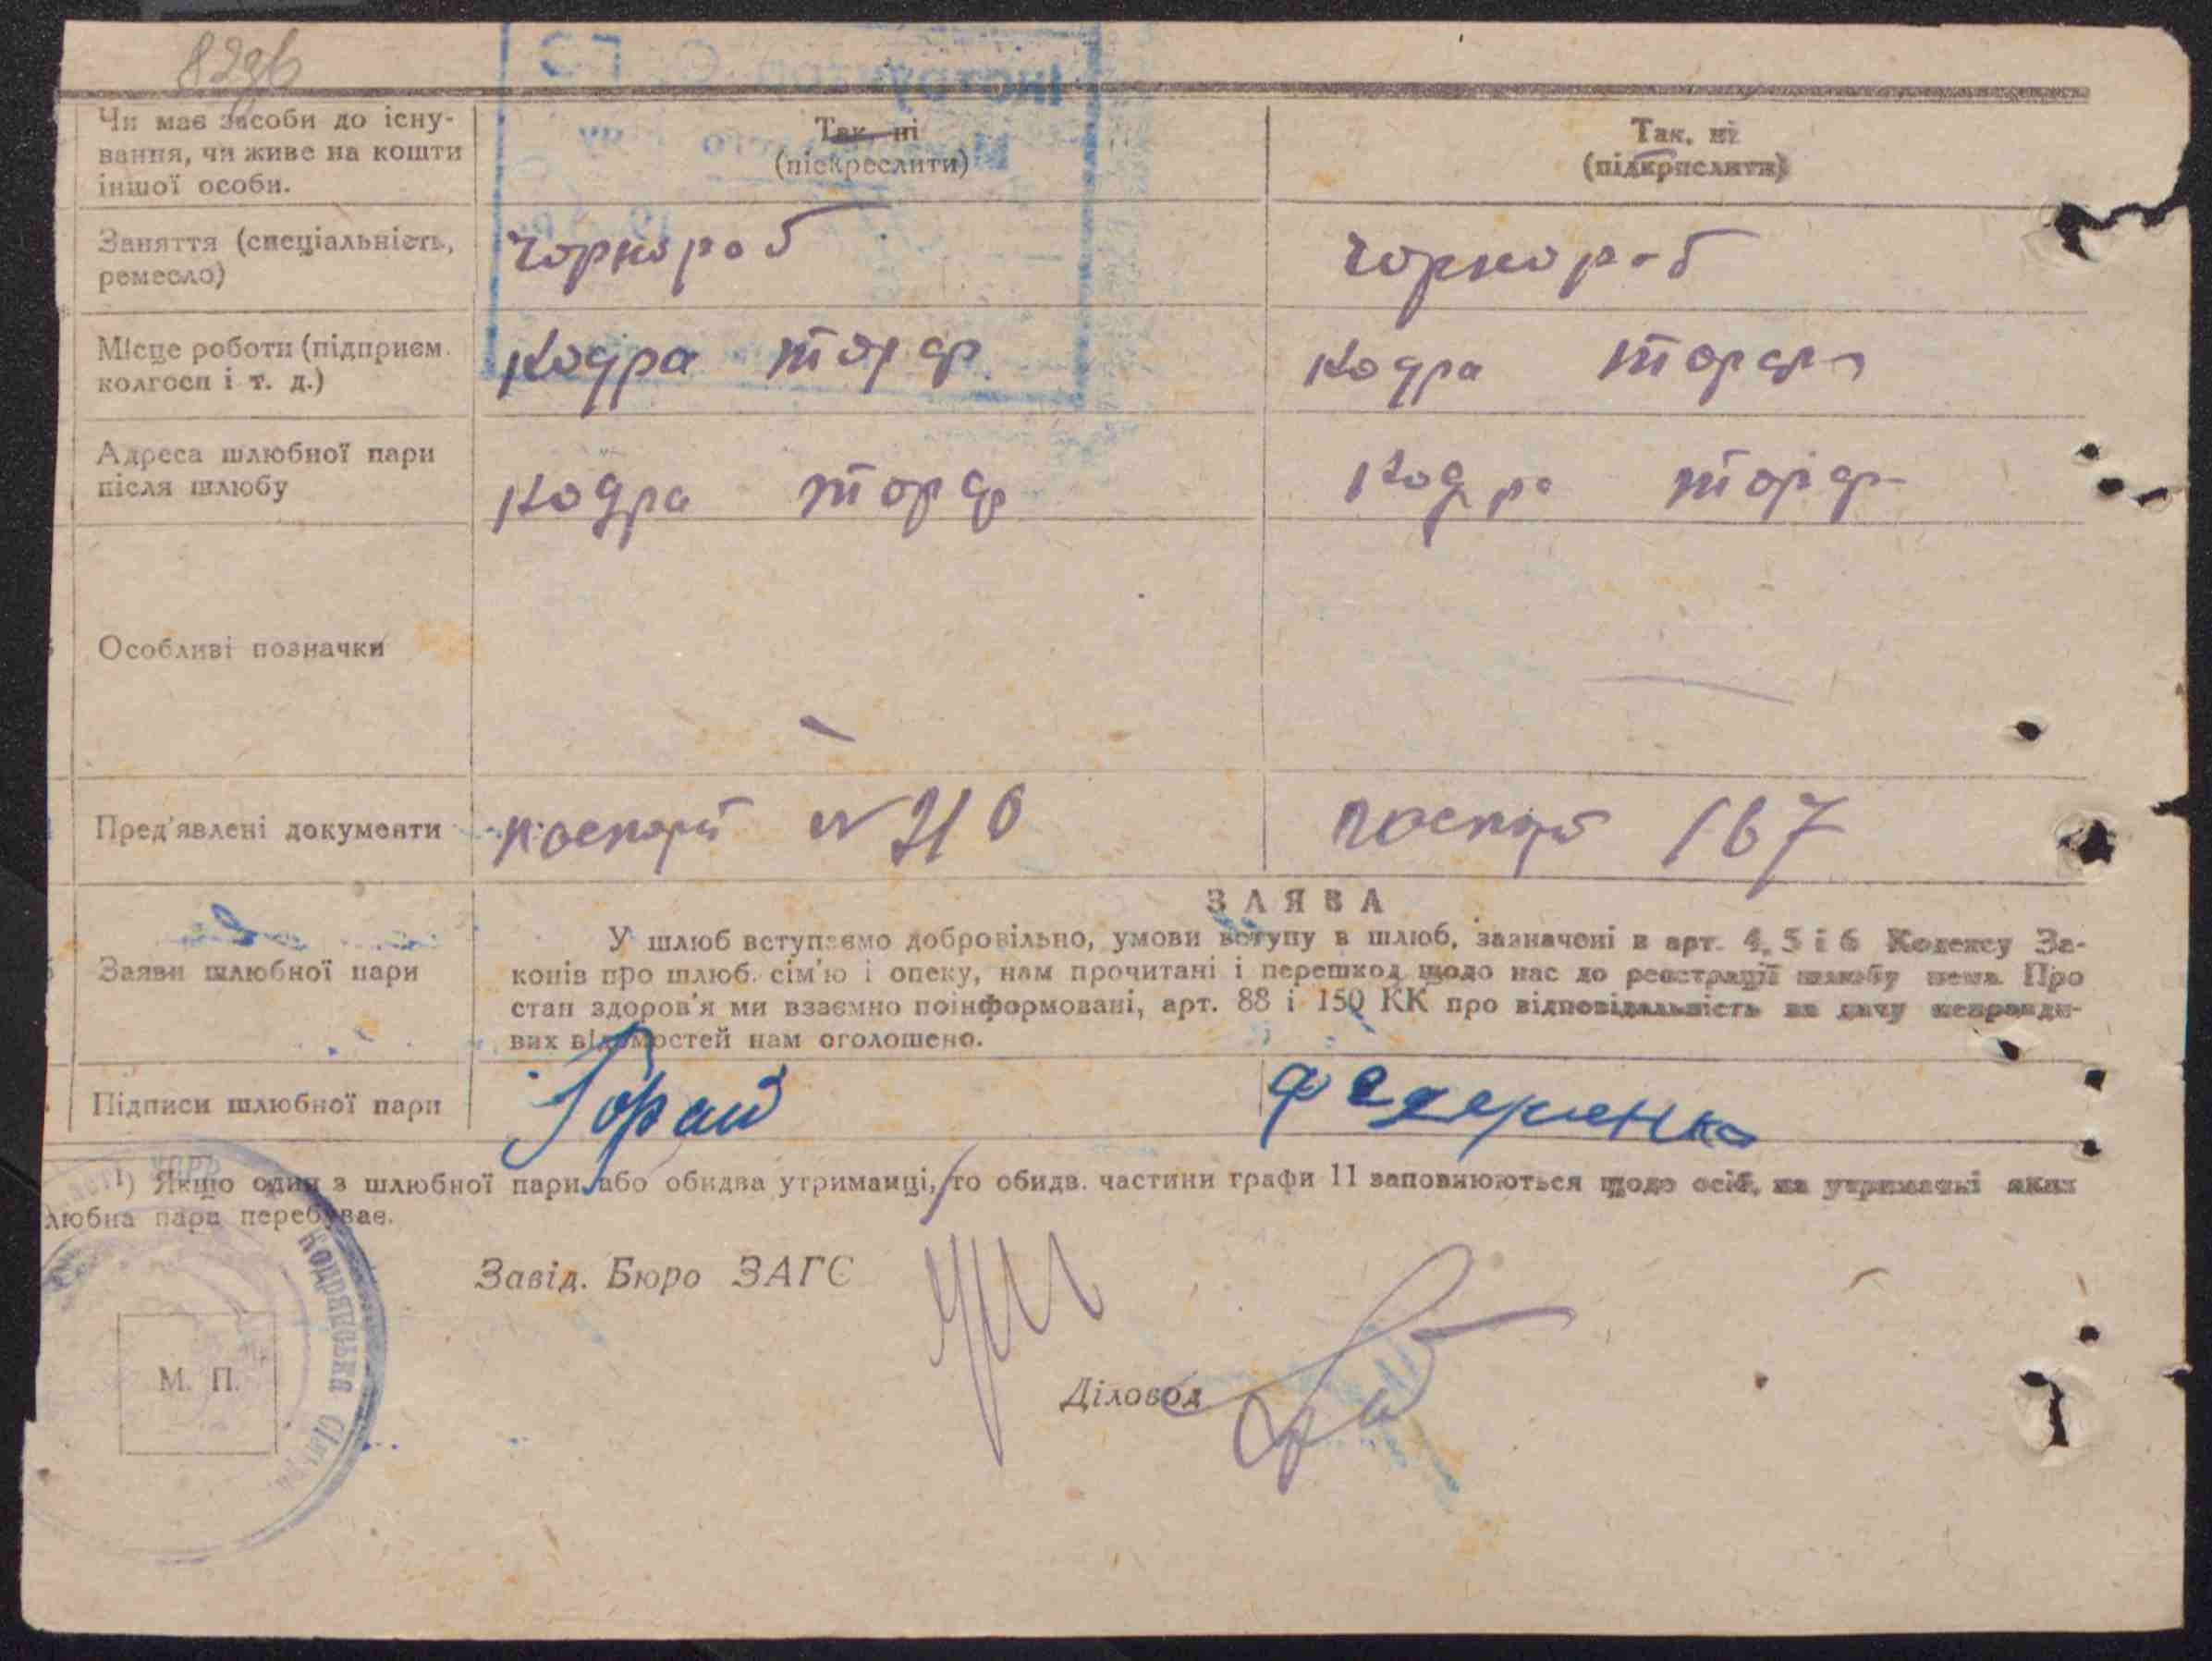 Чи має засоби до існу-
вання, чи живе на кошти
іншої особи.
Так, ні
(піскреслити)
Так, ні
(підкрислити)
Заняття (спеціальність,
ремесло)
Чорнороб
Чорнороб
Місце роботи (підприєм.
колгосп і т. д.)
Кодра торф
Кодра торф
Адреса шлюбної пари
після шлюбу
Кодра торф
Кодра торф
Особливі позначки
Пред'явлені документи
паспорт
паспорт 167
ЗАЯВА
Заяви шлюбної пари
У шлюб вступаємо добровільно, умови вступу в шлюб, зазначені в арт. 4, 5 і 6 Кодексу За-
конів про шлюб. сім'ю і опеку, нам прочитані і перешкод щодо нас до реєстрації шлюбу нема. Про
стан здоров'я ми взаємно поінформовані, арт. 88 і 150 КК про відповідальність за дачу неправди-
вих відомостей нам оголошено.
Підписи шлюбної пари
Горай
Федоренко
1) Якщо один з шлюбної пари або обидва утриманці, то обидв. частини графи 11 заповнюються щодо осіб, на утриманні яких
любна пара перебуває.
Завід. Бюро ЗАГС
Діловод
М. П.
Кодрянська